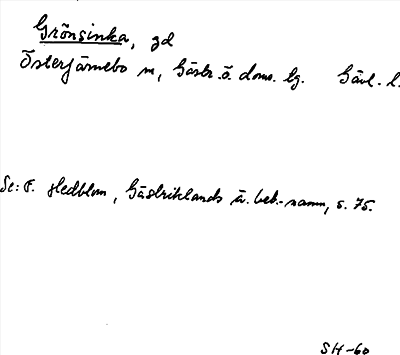 Grönsinka, gd
Österfärnebo sn, Gästr. ö. doms. tg. Gävl. l.
Se: F. Hedblom, Gästriklands ä. beb.-namn, s. 75.
SH-60